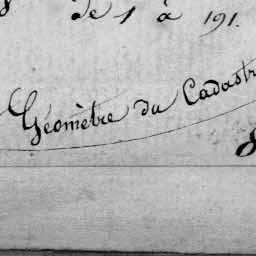 de 1 à 191.
Géomètre du Cadastr